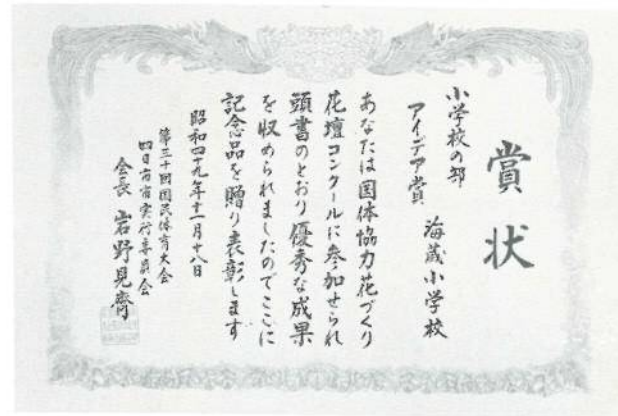 賞状
小学校の部
アイデア賞 海蔵小学校
あなたは国体協力花づくり
花壇コンクールに参加せられ
頭書のとおり優秀な成果
を収められましたのでここに
記念品を贈り表彰します
昭和四十九年十一月十八日
第三十回国民体育大会
四日市市実行委員会
会長 岩野見齊